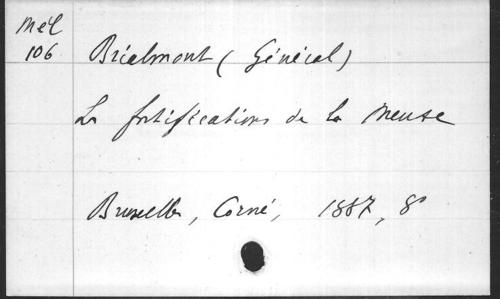 Mél
106
Brialmont (Général)
Les fortifications de la Meuse
Bruxelles, Corné, 1887, 8°